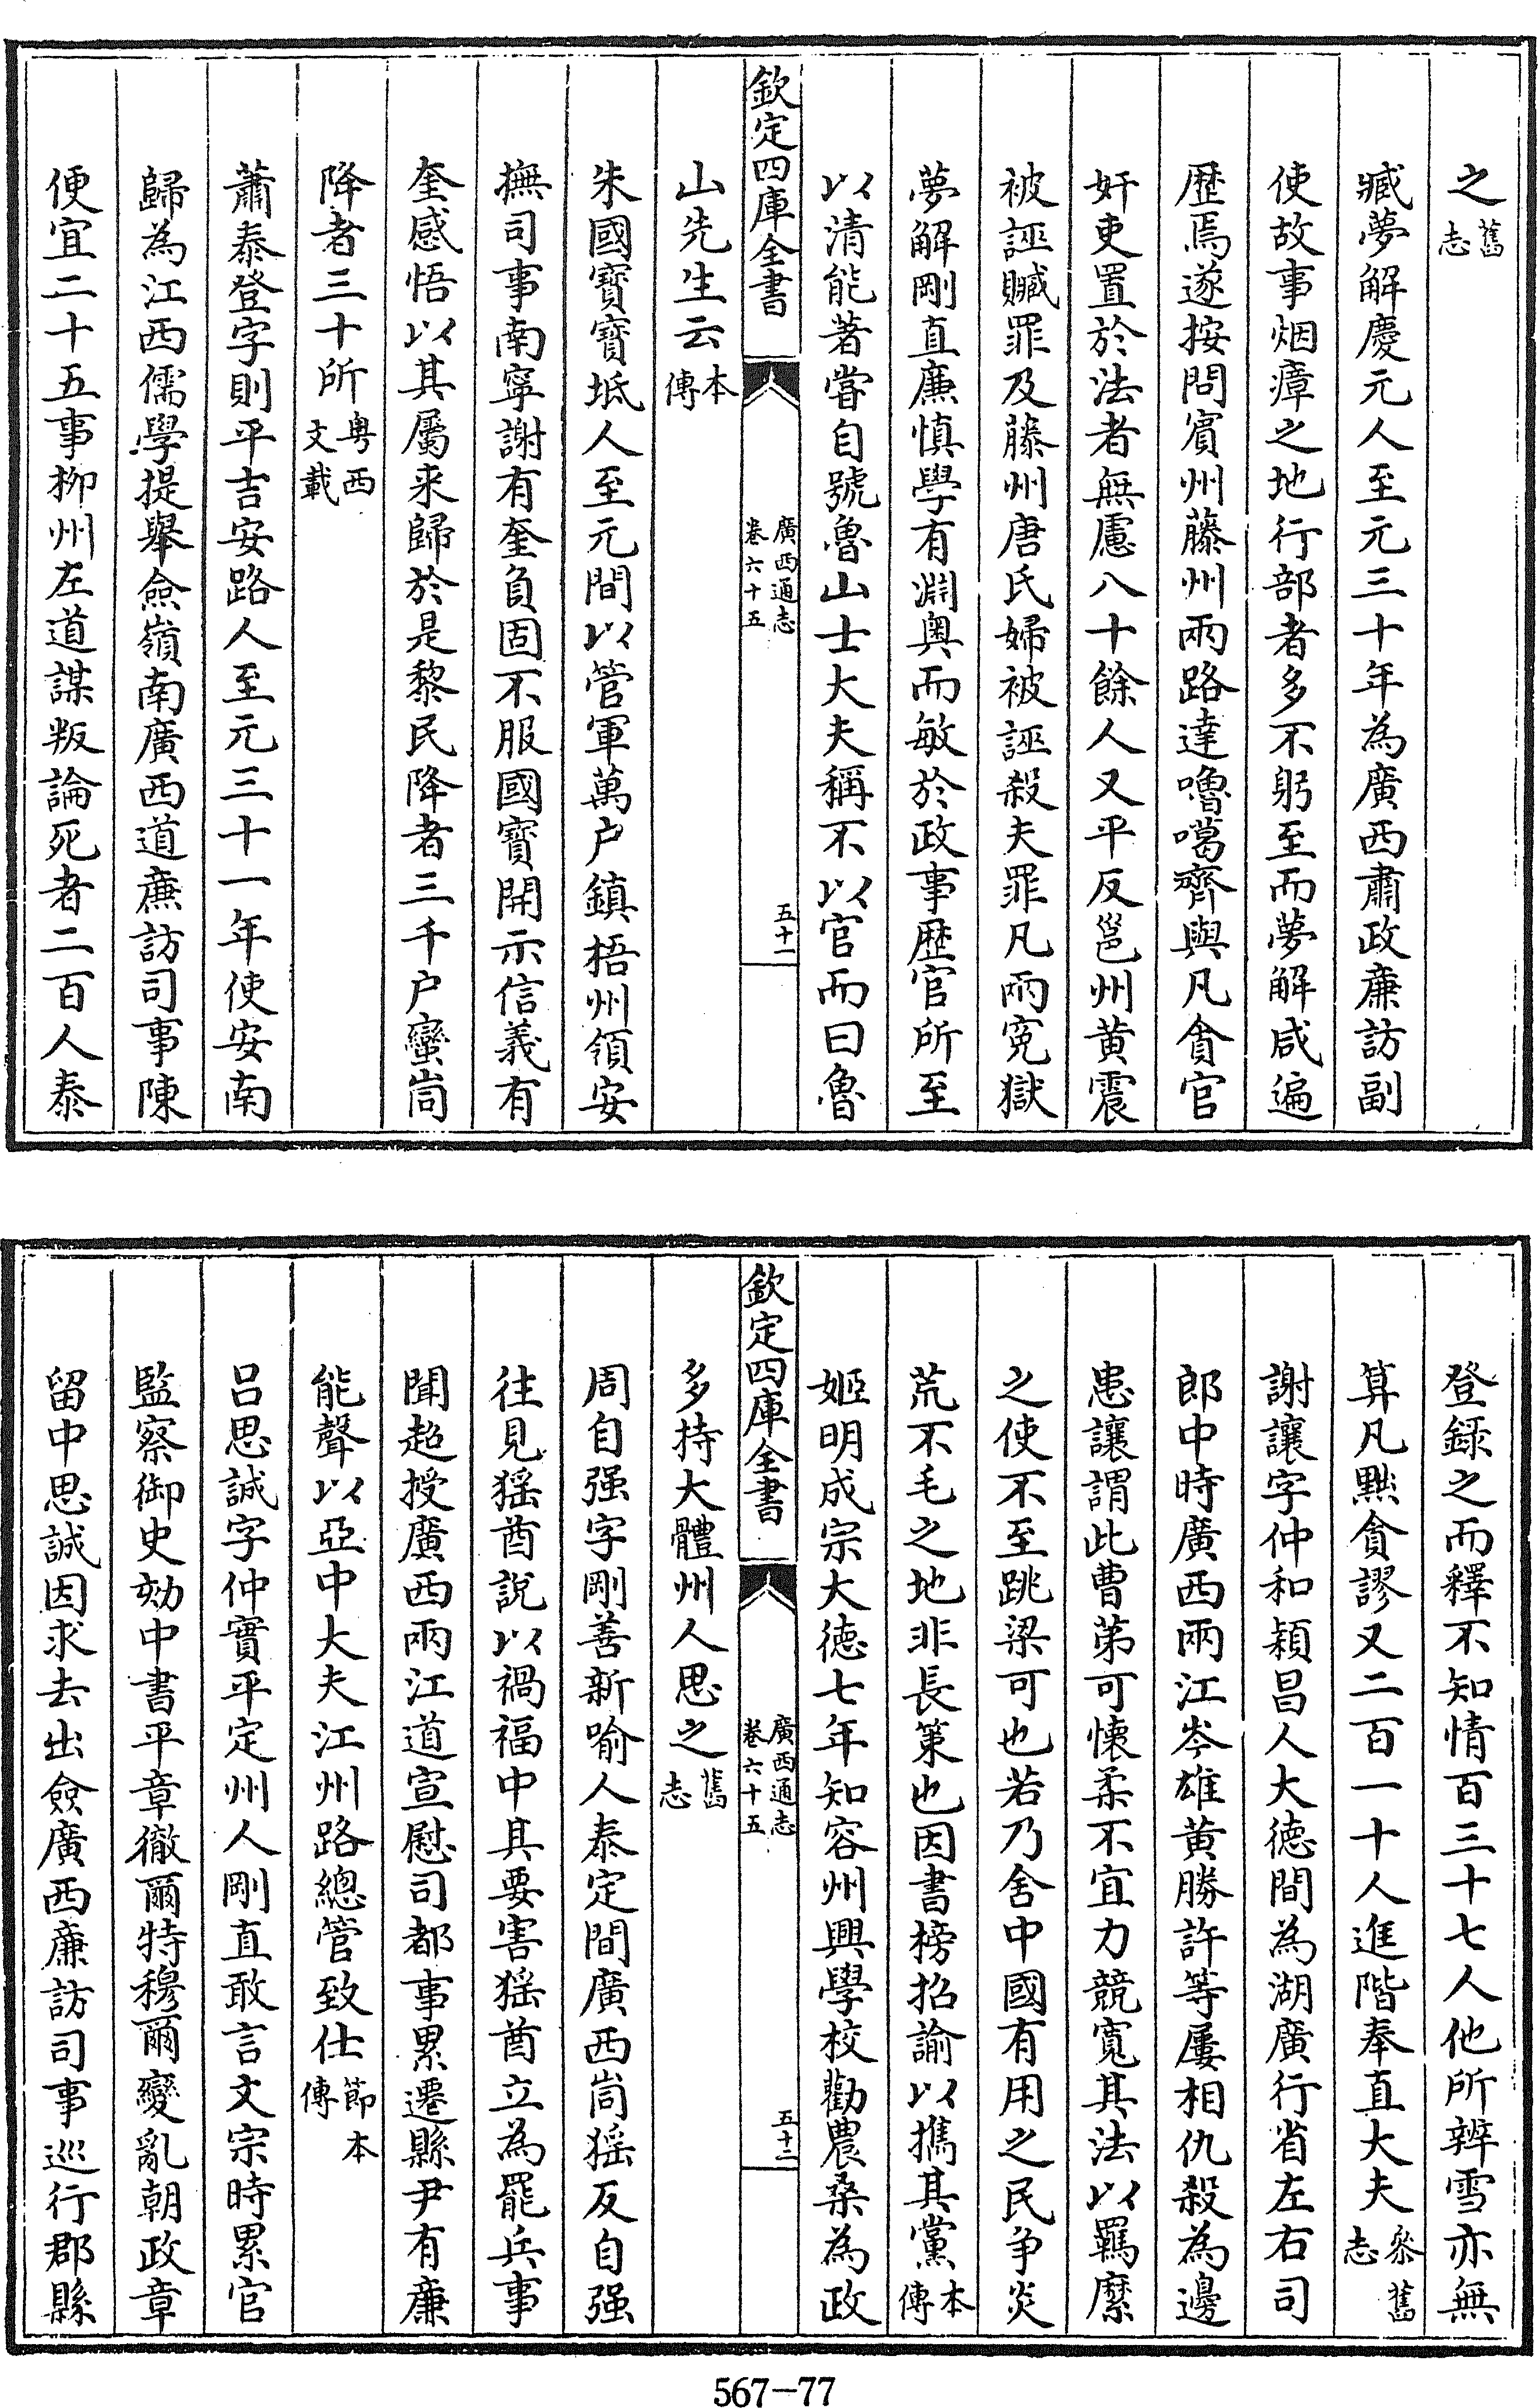 之舊志
臧夢解慶元人至元三十年為廣西肅政廉訪副
使故事烟瘴之地行部者多不躬至而夢解咸遍
歴焉遂按問賓州藤州兩路達嚕噶齊與凡貪官
奸吏置於法者無慮八十餘人又平反邕州黄震
被誣贓罪及藤州唐氏婦被誣殺夫罪凡兩寃獄
夢解剛直廉慎學有淵奥而敏於政事歴官所至
以清能著嘗自號魯山士大夫稱不以官而曰魯
欽定四庫全書 廣西通志卷六十五 五十一
山先生云本傳
朱國寶寶坻人至元間以管軍萬户鎮梧州領安
撫司事南寧謝有奎負固不服國寶開示信義有
奎感悟以其屬来歸於是黎民降者三千户蠻峝
降者三十所粤西文載
蕭泰登字則平吉安路人至元三十一年使安南
歸為江西儒學提舉僉嶺南廣西道廉訪司事陳
便宜二十五事柳州左道謀叛論死者二百人泰
登録之而釋不知情百三十七人他所辨雪亦無
算凡黜貪謬又二百一十人進階奉直大夫叅舊志
謝讓字仲和潁昌人大徳間為湖廣行省左右司
郎中時廣西兩江岑雄黄勝許等屢相仇殺為邊
患讓謂此曹第可懐柔不宜力競寛其法以羈縻
之使不至跳梁可也若乃舍中國有用之民争炎
荒不毛之地非長策也因書榜招諭以攜其黨本傳
姬明成宗大徳七年知容州興學校勸農桑為政
欽定四庫全書 廣西通志卷六十五 五十二
多持大體州人思之舊志
周自强字剛善新喻人泰定間廣西峝猺反自强
往見猺酋說以禍福中其要害猺酋立為罷兵事
聞超授廣西兩江道宣慰司都事累遷縣尹有廉
能聲以亞中大夫江州路總管致仕節本傳
吕思誠字仲實平定州人剛直敢言文宗時累官
監察御史劾中書平章徹爾特穆爾變亂朝政章
留中思誠因求去出僉廣西廉訪司事巡行郡縣
567-77